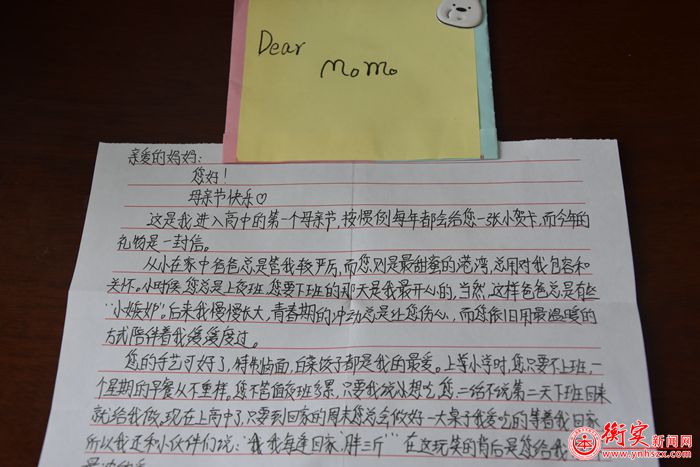 Dear
MoMo
亲爱的妈妈:
您好!
母亲节快乐♡
这是我进入高中的第一个母亲节,按惯例每年都会给您一张小贺卡,而今年的
礼物是一封信。
从小在家中爸爸总是管我较严厉,而您则是最甜蜜的港湾,总用对我包容和
关怀。小时候,您总是上夜班,您要下班的那天是我最开心的,当然,这样爸爸总是有些
“小嫉妒”。后来我慢慢长大,青春期的冲动总是让您伤心,而您依旧用最温暖的
方式陪伴着我慢慢度过。
您的手艺可好了,特制卤面,白菜饺子都是我的最爱。上小学时,您只要不上班,一
个星期的早餐从不重样。您不管值夜班多累,只要我说想吃,您二话不说第二天下班回来
就给我做。现在上高中了,只要到回家的周末您总会做好一大桌子我爱吃的等着我回家
所以我还和小伙伴们说:“我每逢回家‘胖三斤’”在这玩笑的背后是您给我
衡实新闻网
www.ynhszx.com